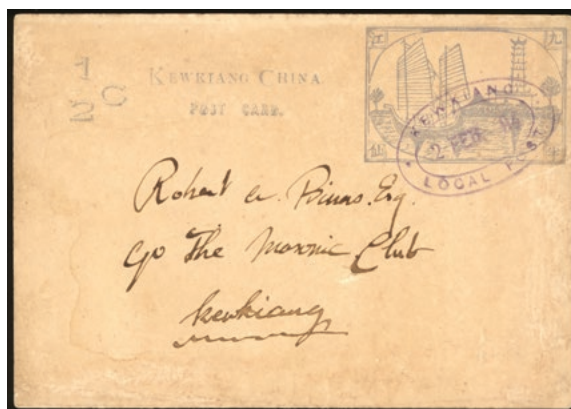 九江
1/2 C
KEWKIANG CHINA.
POST CARD.
KEWKIANG
2 FEB
LOCAL POST
Robert A. Esq.
C/o The Masonic Club
Kewkiang